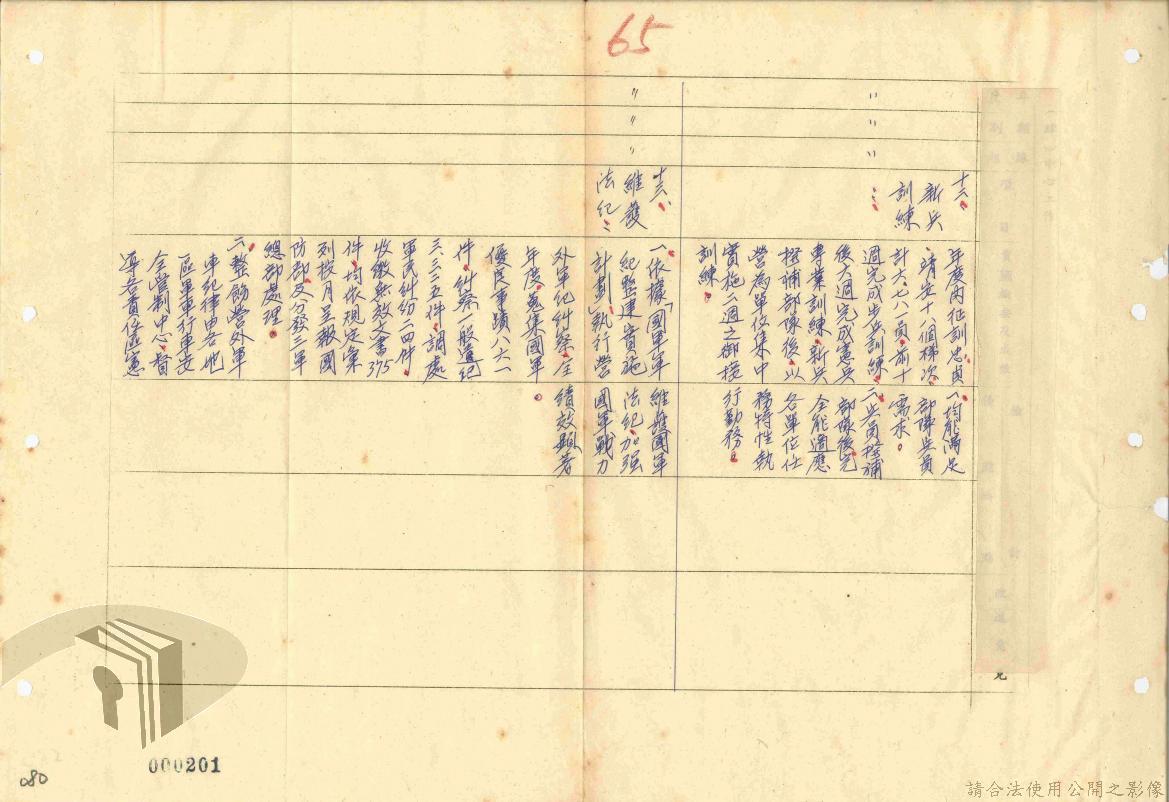 65
〃
〃
〃
十二、
新兵
訓練：
年度內征訓忠貞
、靖安十八個梯次，
計六、七八一員，前十
週完成步兵訓練，
後六週完成憲兵
專業訓練，新兵
撥補部隊後，以
營為單位集中
實施二週之銜接
訓練。
一、均能滿足
部隊兵員
需求。
二、兵員撥補
部隊後，完
全能適應
各單位任
務特性執
行勤務。
〃
〃
〃
十三、
維護
法紀：
一、依據「國軍軍
紀整建實施
計劃」執行營
外軍紀糾察，全
年度蒐集國軍
優良事蹟八六一
件，糾察一般違紀
三、三三五件，調處
軍民糾紛二四件，
收繳無效文書375
件，均依規定彙
列按月呈報國
防部及分致三軍
總部處理。
二、整飭營外軍
車紀律由各地
區軍車行車安
全管制中心，督
導各責任區憲
維護國軍
法紀，加强
國軍戰力
績效顯著
。
000201
080
請合法使用公開之影像